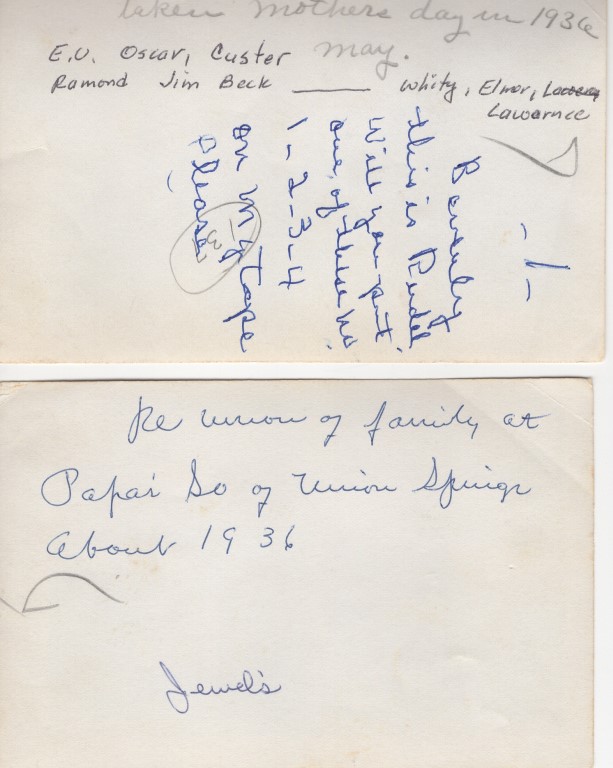 taken Mothers day in 1936
May.
E.V. Oscar, Custer
Ramond Jim Beck ——— Whity, Elmer,
Lawarnce
- 1 -
Beverly
this is Rudell
Will you put
one, of these no.
1-2-3-4
on my tape
Please
3
Re union of family at
Papa's So of Union Springs
About 1936
Jewel's